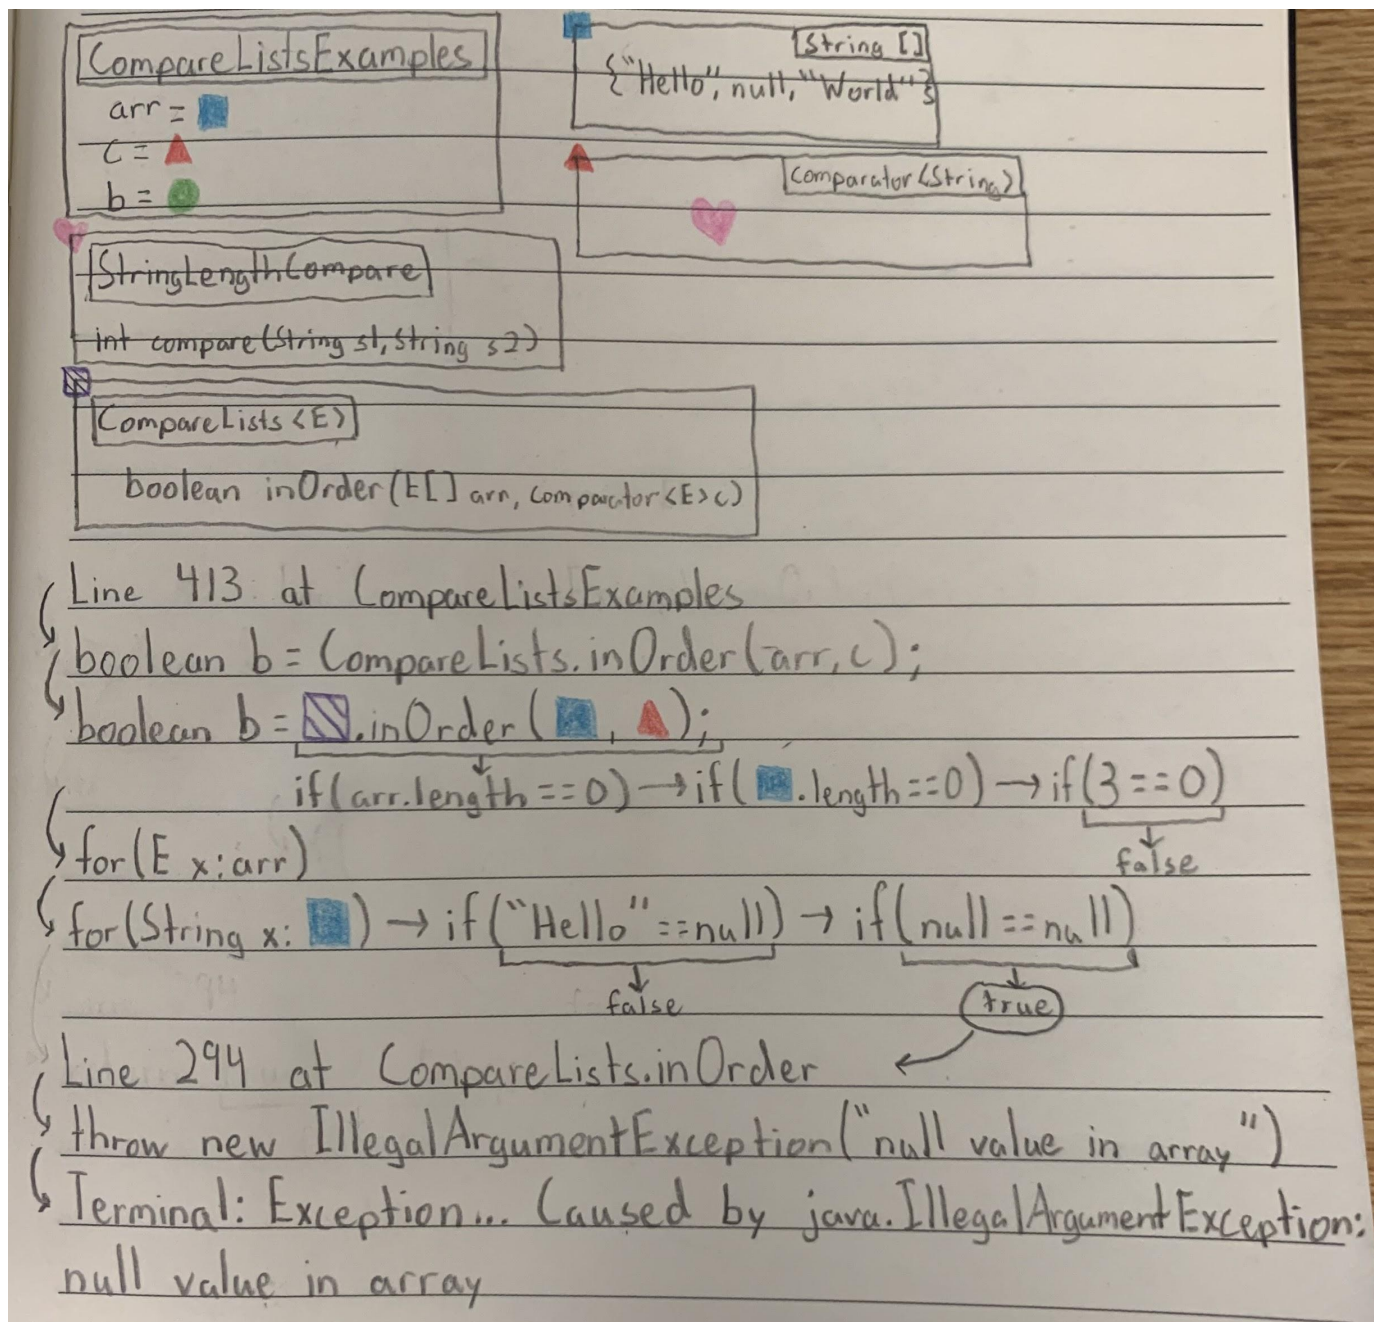 CompareListsExamples
arr =
c =
b =
String []
{"Hello", null, "World"}
Comparator<String>
StringLengthCompare
int compare(String s1, String s2)
CompareLists<E>
boolean inOrder(E[] arr, Comparator<E> c)
Line 413 at CompareListsExamples
boolean b = CompareLists.inOrder(arr, c);
boolean b = .inOrder( , );
if(arr.length == 0) → if( .length == 0) → if(3 == 0)
for(E x: arr)
false
for(String x: ) → if("Hello" == null) → if(null == null)
false
true
Line 294 at CompareLists.inOrder
throw new IllegalArgumentException("null value in array")
Terminal: Exception... Caused by java.IllegalArgumentException:
null value in array